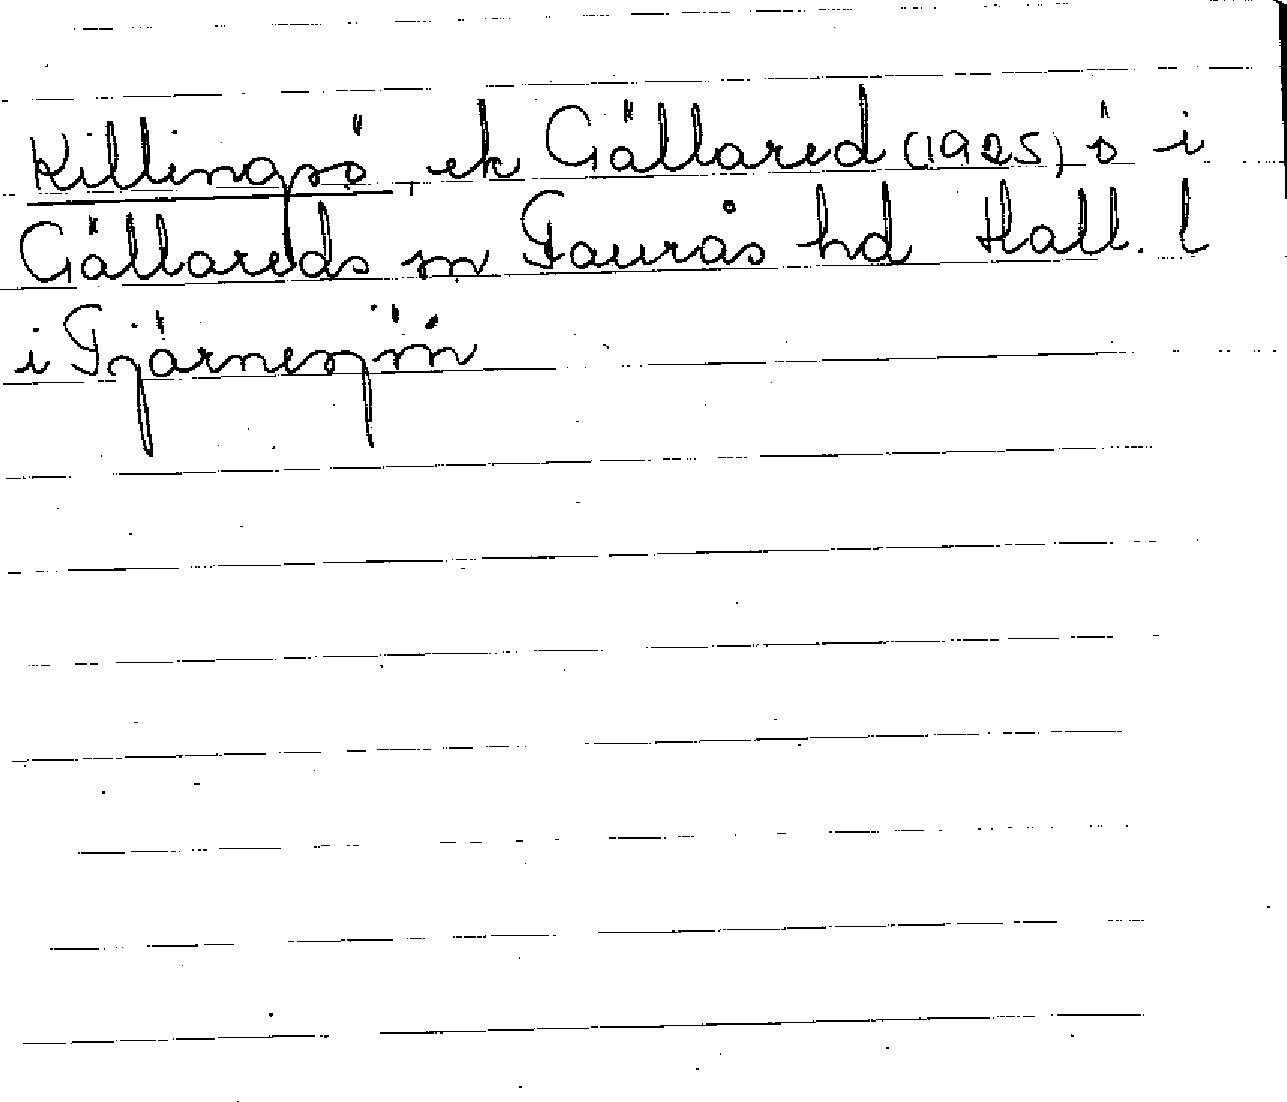 Killingsö, ek Gällared (1925) ö i
Gällareds sn Faurås hd Hall. l
i Fjärnesjön